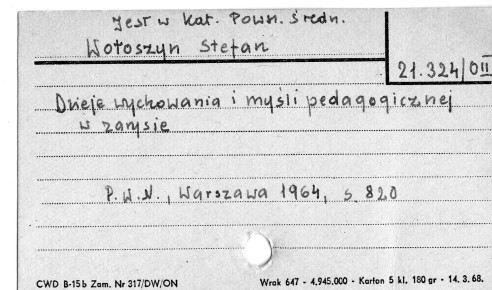 Jest w Kat. Pown. Średn.
Wołoszyn Stefan
21.324/OII
Dzieje wychowania i myśli pedagogicznej
w zarysie
P.W.N., Warszawa 1964, s. 820
CWD B-15b Zam. Nr 317/DW/ON
Wrak 647 - 4.945.000 - Karton 5 kl. 180 gr - 14. 3. 68.